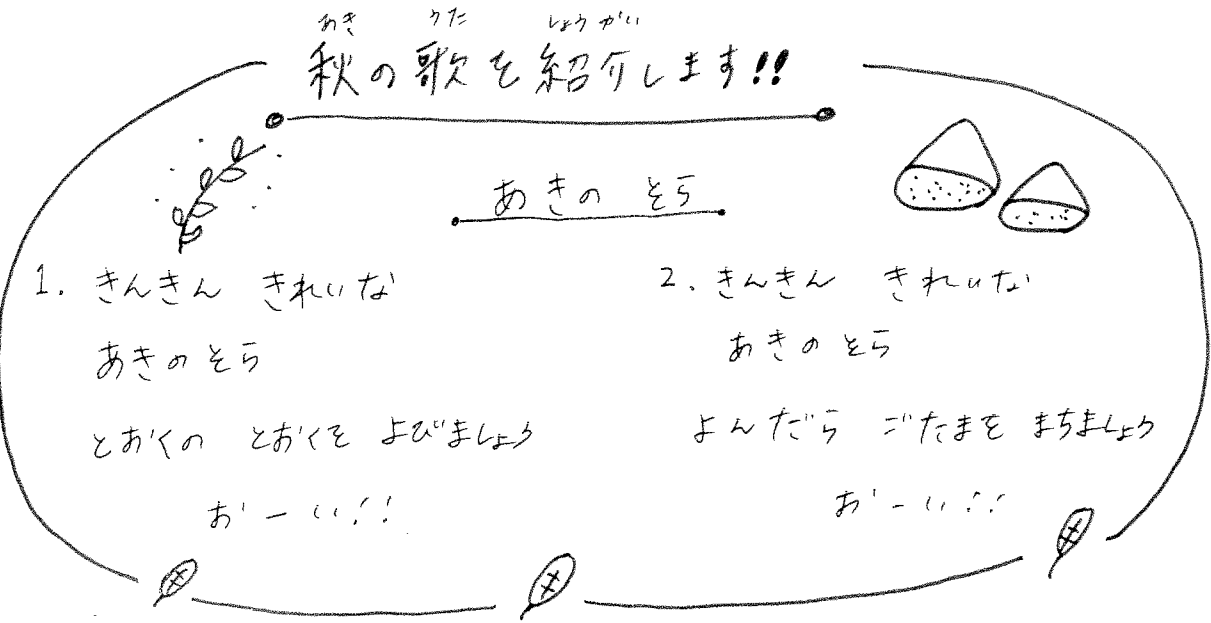 あき うた しょうかい
秋の歌を紹介します!!
あきの そら
1. きんきん きれいな
あきのそら
とおくの とおくを よびましょう
おーい!!
2. きんきん きれいな
あきのそら
よんだら こだまを まちましょう
おーい!!